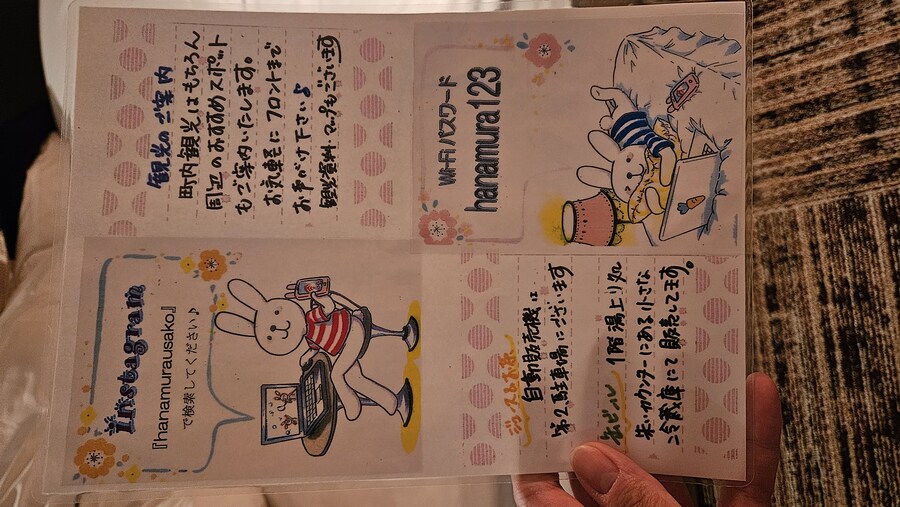 Instagram
『hanamurausako』
で検索してください♪
観光のご案内
町内観光はもちろん
周辺のおすすめスポット
もご案内いたします。
お気軽にフロントまで
お声がけ下さい♪
観光資料・マップもございます
Wi-Fi パスワード
hanamura123
ジュース＆お茶
自動販売機は
第2駐車場にございます
缶ビール 1階湯上り処
朱カウンターにある小さな
冷蔵庫にて販売してます。